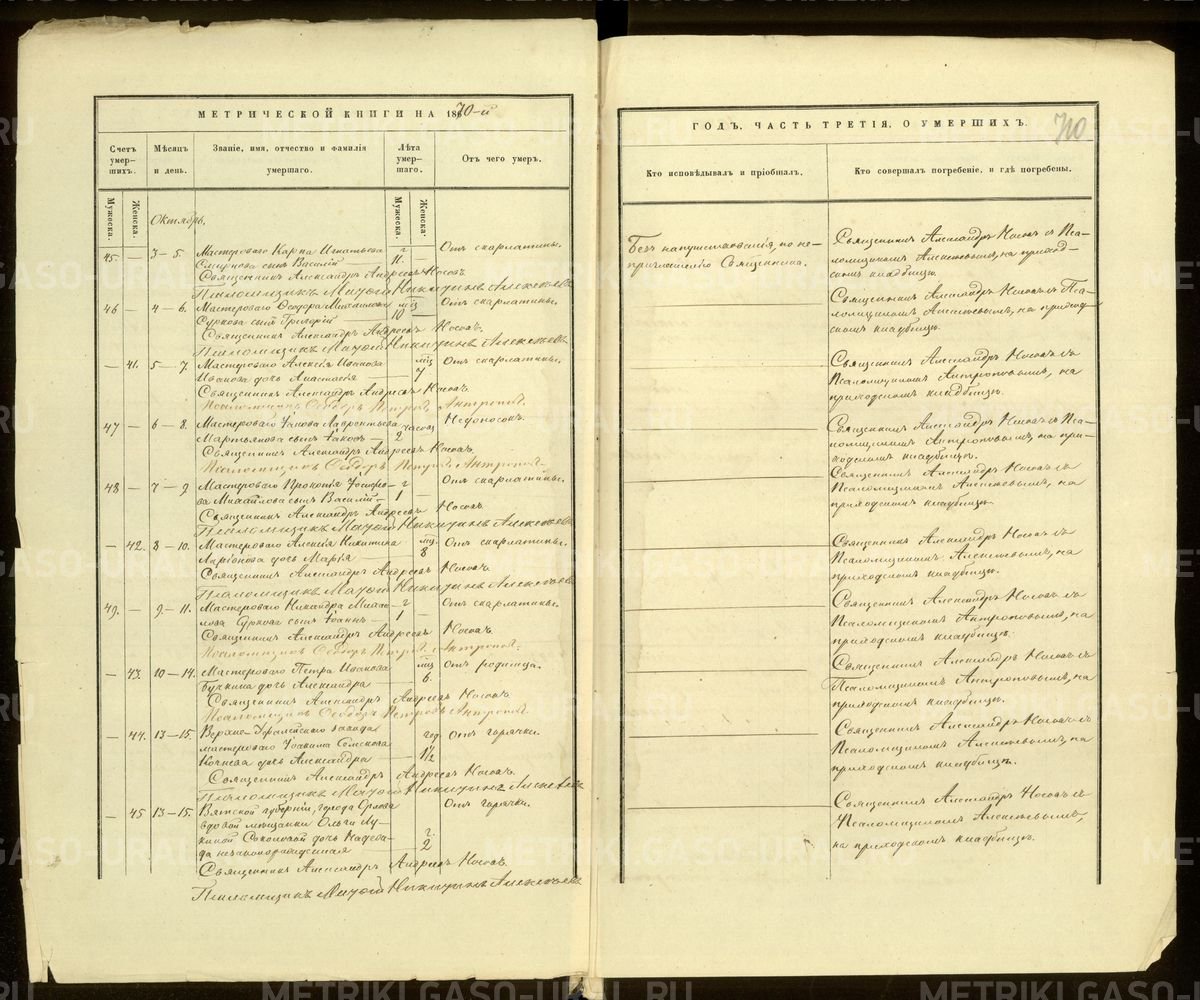 МЕТРИЧЕСКОЙ КНИГИ НА 1870-й
Счетъ умер-шихъ.
Мѣсяцъ и день.
Званіе, имя, отчество и фамилія умершаго.
Лѣта умер-шаго.
Отъ чего умеръ.
Мужеска.
Женска.
Мужеска.
Женска.
Октябрь.
45 — 3 — 5. Мастероваго Карпа Игнатьева г Отъ скарлатины.
Смирнова сынъ Василій 11.
Священникъ Александръ Андреевъ Носовъ.
Псаломщикъ Матѳій Никитинъ Алексѣевъ
46 — 4 — 6. Мастероваго Ѳеодора Михаилова мц Отъ скарлатины.
Суркова сынъ Григорій 10
Священникъ Александръ Андреевъ Носовъ.
Псаломщикъ Матѳій Никитинъ Алексѣевъ
— 41. 5 — 7. Мастероваго Алексія Иванова мц Отъ скарлатины.
Иванова дочь Анастасія 7
Священникъ Александръ Андреевъ Носовъ.
Псаломщикъ Ѳеодоръ Петровъ Антроповъ.
47 — 6 — 8. Мастероваго Іакова Лаврентьева часов Недоносокъ.
Мартьянова сынъ Іаковъ — 2
Священникъ Александръ Андреевъ Носовъ.
Псаломщикъ Ѳеодоръ Петровъ Антроповъ.
48 — 7 — 9. Мастероваго Прокопія Іосифо- г Отъ скарлатины.
ва Михайлова сынъ Василій — 1
Священникъ Александръ Андреевъ Носовъ
Псаломщикъ Матѳій Никитинъ Алексѣевъ
— 42. 8 — 10. Мастероваго Алексія Никитина мц. Отъ скарлатины.
Ларіонова дочь Марія 8
Священникъ Александръ Андреевъ Носовъ
Псаломщикъ Матѳій Никитинъ Алексѣевъ
49. — 9 — 11. Мастероваго Никандра Михаи- г Отъ скарлатины.
лова сынъ Іоаннъ — 1
Священникъ Александръ Андреевъ Носовъ.
Псаломщикъ Ѳеодоръ Петровъ Антроповъ.
— 43. 10 — 14. Мастероваго Петра Иванова мц Отъ родимца.
дочь Александра 6.
Священникъ Александръ Андреевъ Носовъ.
Псаломщикъ Ѳеодоръ Петровъ Антроповъ.
— 44. 13 — 15. Верхне-Уфалейскаго завода год. Отъ горячки.
мастероваго 1½
дочь Александра
Священникъ Александръ Андреевъ Носовъ.
Псаломщикъ Матѳій Никитинъ Алексѣевъ
— 45 13 — 15. Вятской губерніи, города Орлова Отъ горячки.
вдовой мѣщанки Ольги Лу-
киной дочь Надеж- г.
да незаконорожденная 2
Священникъ Александръ Андреевъ Носовъ.
Псаломщикъ Матѳій Никитинъ Алексѣевъ
ГОДЪ, ЧАСТЬ ТРЕТІЯ, О УМЕРШИХЪ.
Кто исповѣдывалъ и пріобталъ.
Кто совершалъ погребеніе, и гдѣ погребены.
Безъ напутствованія, по не-
приглашенію Священника.
Священникъ Александръ Носовъ съ Пса-
ломщикомъ Алексѣевымъ, на приход-
скомъ кладбищѣ.
Священникъ Александръ Носовъ съ Пса-
ломщикомъ Алексѣевымъ, на приход-
скомъ кладбищѣ.
Священникъ Александръ Носовъ съ
Псаломщикомъ Антроповымъ, на
приходскомъ кладбищѣ.
Священникъ Александръ Носовъ съ Пса-
ломщикомъ Антроповымъ, на при-
ходскомъ кладбищѣ.
Священникъ Александръ Носовъ съ
Псаломщикомъ Алексѣевымъ, на
приходскомъ кладбищѣ.
Священникъ Александръ Носовъ съ
Псаломщикомъ Алексѣевымъ, на
приходскомъ кладбищѣ.
Священникъ Александръ Носовъ съ
Псаломщикомъ Антроповымъ, на
приходскомъ кладбищѣ.
Священникъ Александръ Носовъ съ
Псаломщикомъ Антроповымъ, на
приходскомъ кладбищѣ.
Священникъ Александръ Носовъ съ
Псаломщикомъ Алексѣевымъ, на
приходскомъ кладбищѣ.
Священникъ Александръ Носовъ съ
Псаломщикомъ Алексѣевымъ,
на приходскомъ кладбищѣ.
METRIKI.GASO-URAL.RU